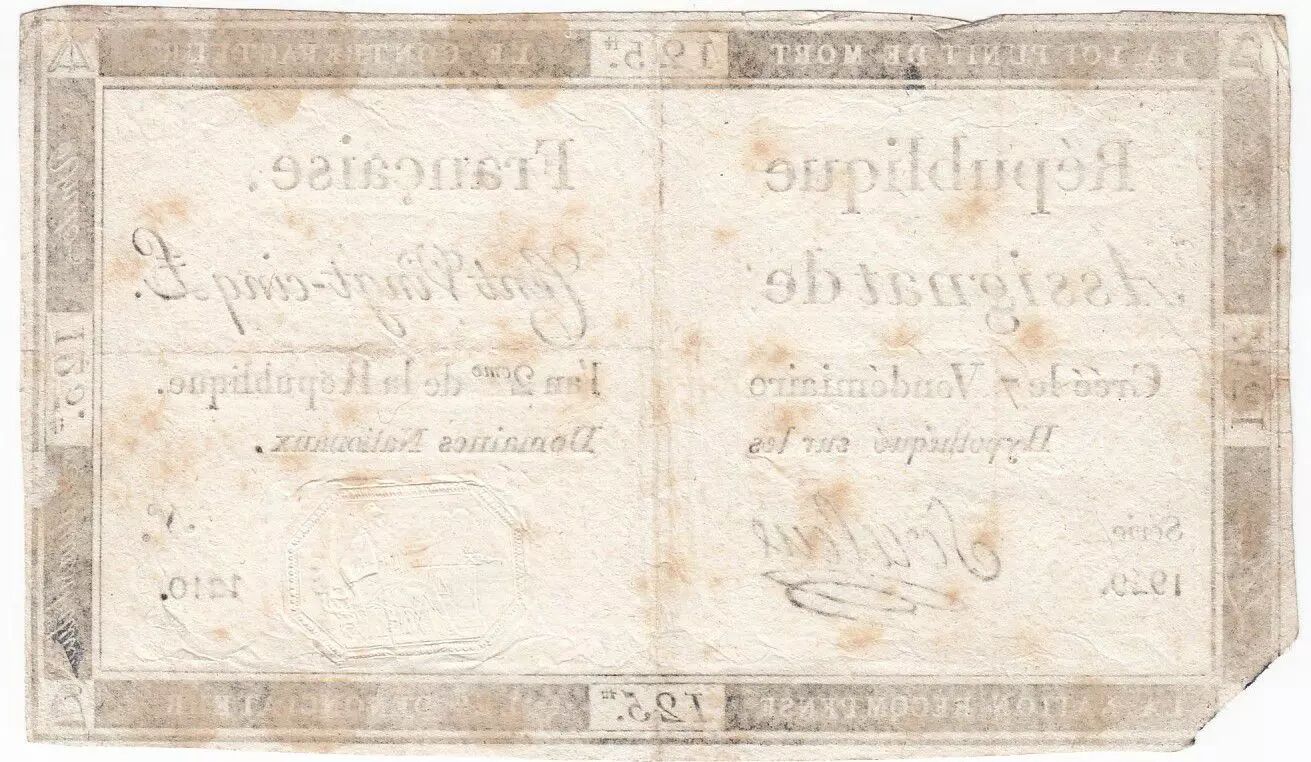 LA LOI PUNIT DE MORT 125.tt LE CONTREFACTEUR
République Française.
Assignat de Cent Vingt-cinq £.
Créé le 7 Vendémiaire l'an 2eme de la République.
Hypothéqué sur les Domaines Nationaux.
Série
1929.
Nº.
1210.
125.tt
LA NATION RECOMPENSE 125.tt LE DENONCIATEUR